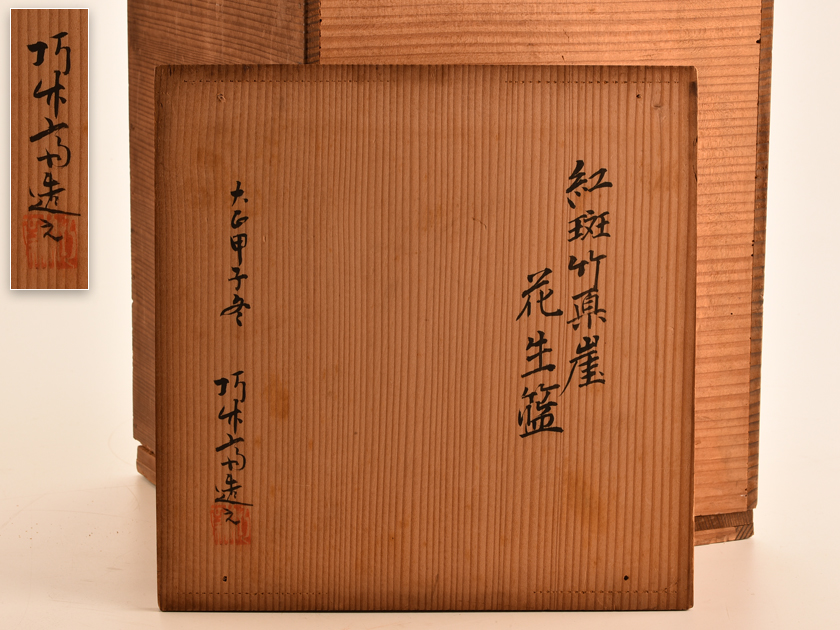 紅斑竹県崖
花生籃
大正甲子冬
巧竹斎造之
巧竹斎造之